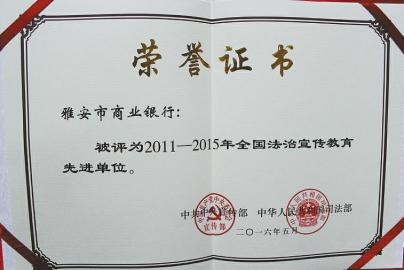 荣誉证书
雅安市商业银行：
被评为2011—2015年全国法治宣传教育
先进单位。
中共中央宣传部 中华人民共和国司法部
宣传部
二〇一六年五月